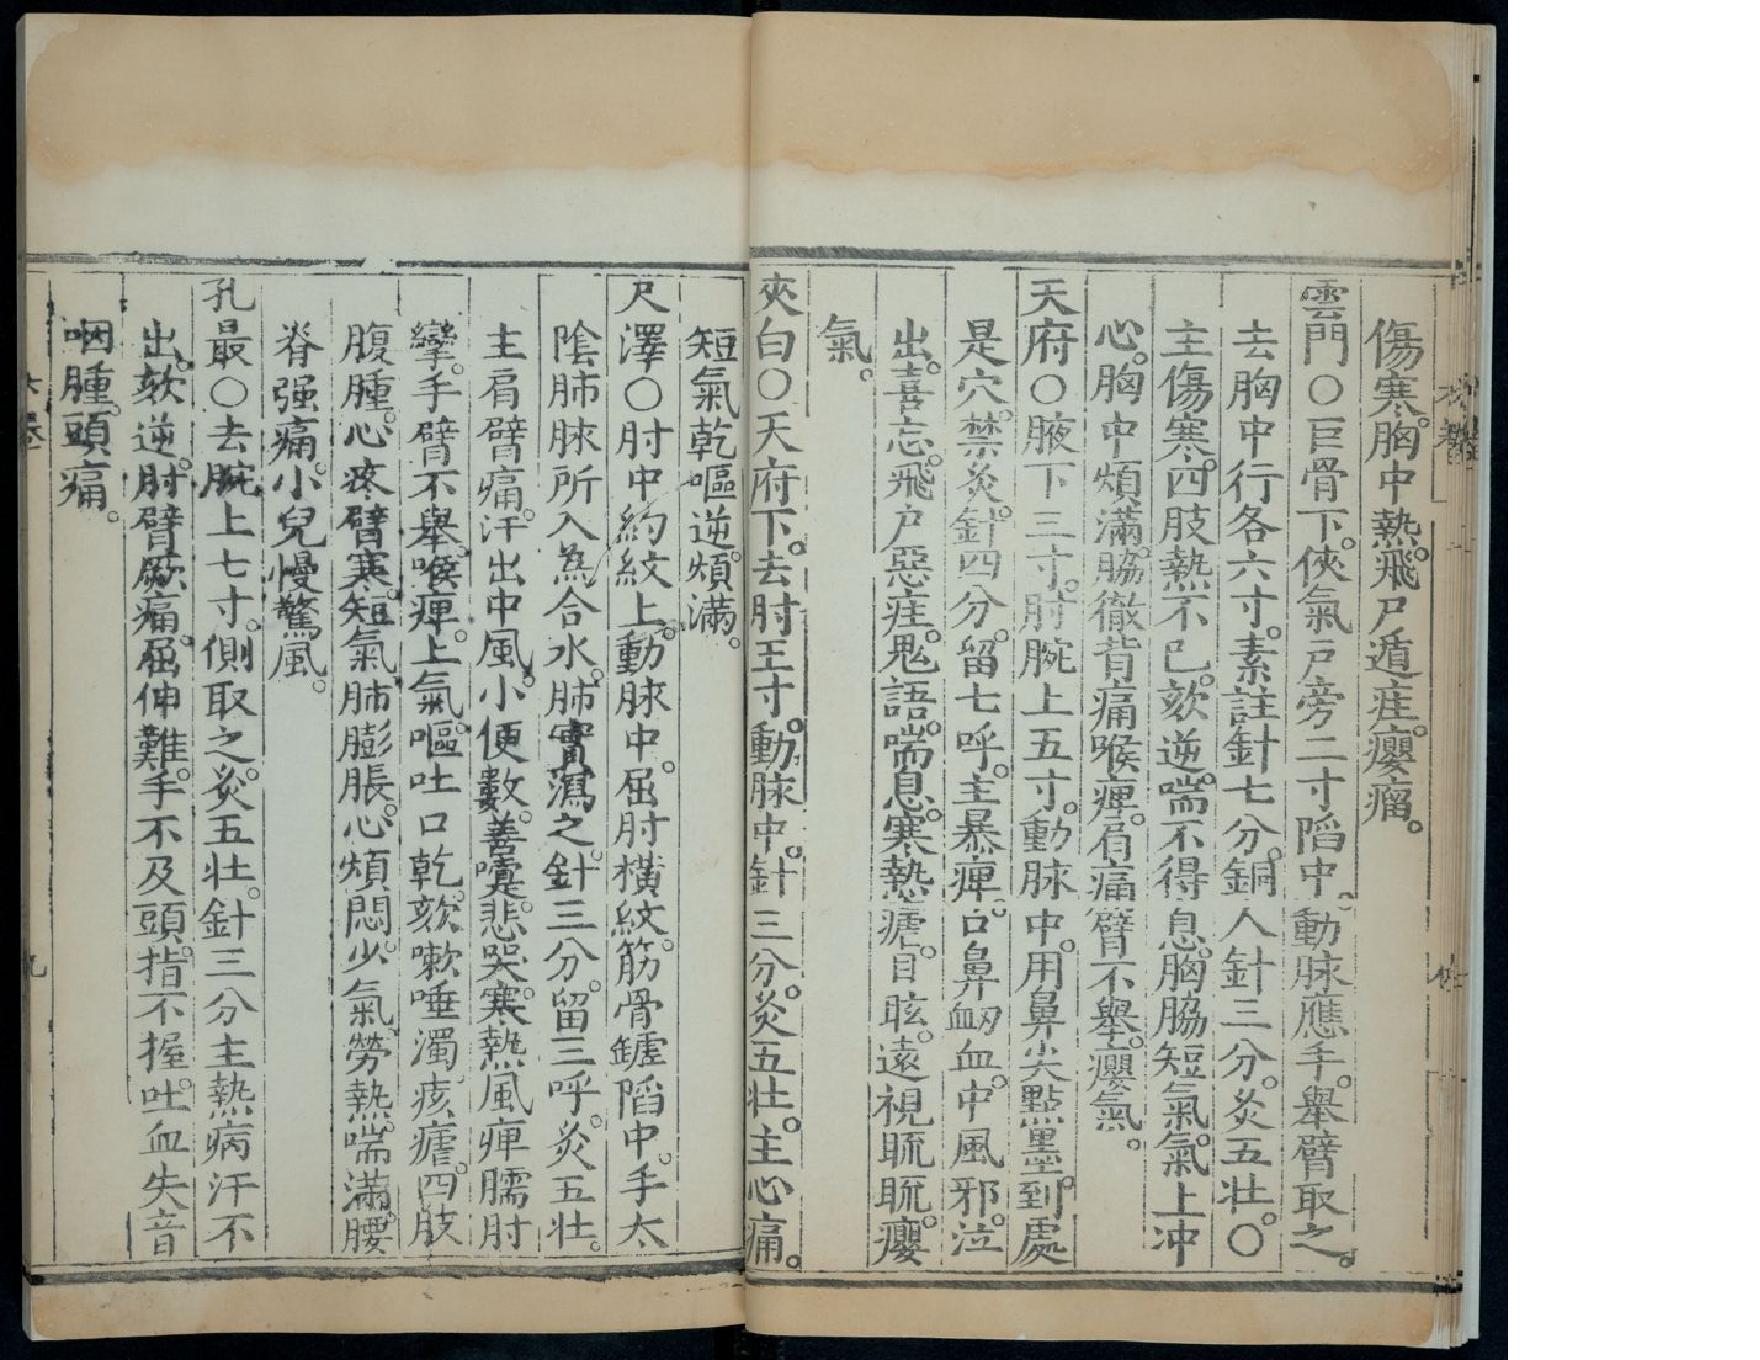 傷寒。胸中熱。飛尸遁疰。癭瘤。
雲門○巨骨下。俠氣戶旁二寸陷中。動脉應手。舉臂取之。
去胸中行各六寸。素註針七分。銅人針三分。灸五壯。○
主傷寒。四肢熱不已。欬逆。喘不得息。胸脇短氣。氣上冲
心。胸中煩滿。脇徹背痛。喉痺。肩痛臂不舉。癭氣。
天府○腋下三寸。肘腕上五寸。動脉中。用鼻尖點墨。到處
是穴。禁灸。針四分。留七呼。主暴痺。口鼻衂血。中風邪。泣
出。喜忘。飛尸惡疰。鬼語。喘息。寒熱瘧。目眩。遠視䀮䀮。癭
氣。
夾白○天府下。去肘五寸。動脉中。針三分。灸五壯。主心痛。
短氣。乾嘔逆。煩滿。
尺澤○肘中約紋上。動脉中。屈肘橫紋。筋骨罅陷中。手太
陰肺脉所入為合水。肺實瀉之。針三分。留三呼。灸五壯。
主肩臂痛。汗出中風。小便數。善嚏。悲哭。寒熱風痺。臑肘
攣。手臂不舉。喉痺。上氣。嘔吐口乾。欬嗽唾濁。痎瘧。四肢
腹腫。心疼臂寒。短氣。肺膨脹。心煩悶。少氣。勞熱。喘滿。腰
脊强痛。小兒慢驚風。
孔最○去腕上七寸。側取之。灸五壯。針三分主熱病汗不
出。欬逆。肘臂厥痛。屈伸難。手不及頭。指不握。吐血失音
咽腫。頭痛。